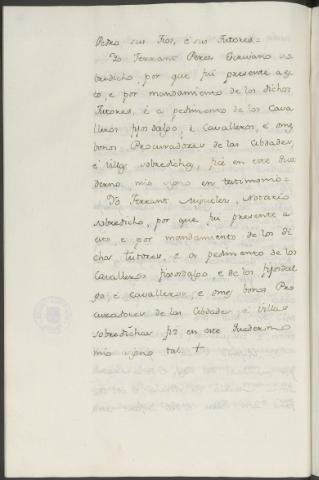 Pedro sus Fijos, è sus Tutores =
Yo Ferrant Perez Escrivano so
bredicho, por que fui presente a es
to, e por mandamiento de los dichos
Tutores, è a pedimento de los Cava
lleros fijosdalgo, è Cavalleros, è omes
bonos Procuradores de las Cibdades,
è Villas sobredichas, fiz en este Qua
derno mio signo en testimonio =
Yo Ferrant Miguelez, Notario
sobredicho, por que fui presente a
esto, e por mandamiento de los di
chos Tutores, e a pedimento de los
Cavalleros fijosdalgo, e de los fijosdal
go, è cavalleros, e omes bonos Pro
curadores de las Cibdades, è Villas
sobredichas fiz en este Quaderno
mio signo tal. +